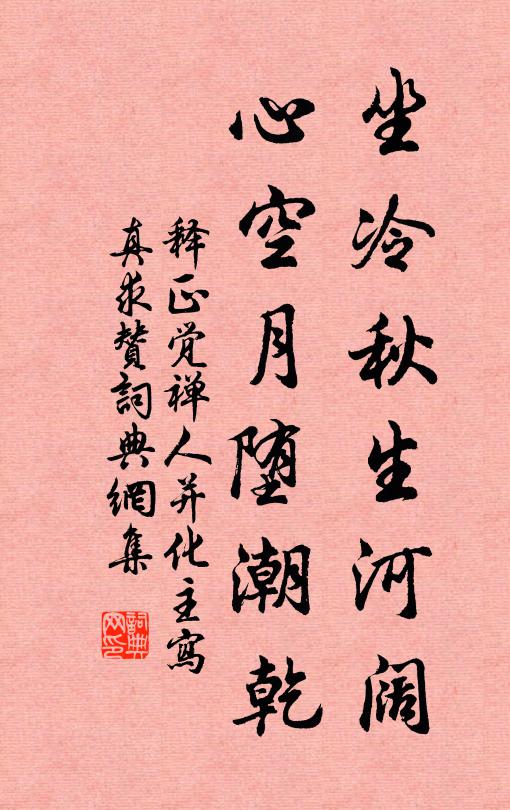 坐冷秋生河阔
心空月堕潮乾
释正觉禅人并化主寫
真求赞詞典網集
詞典網印